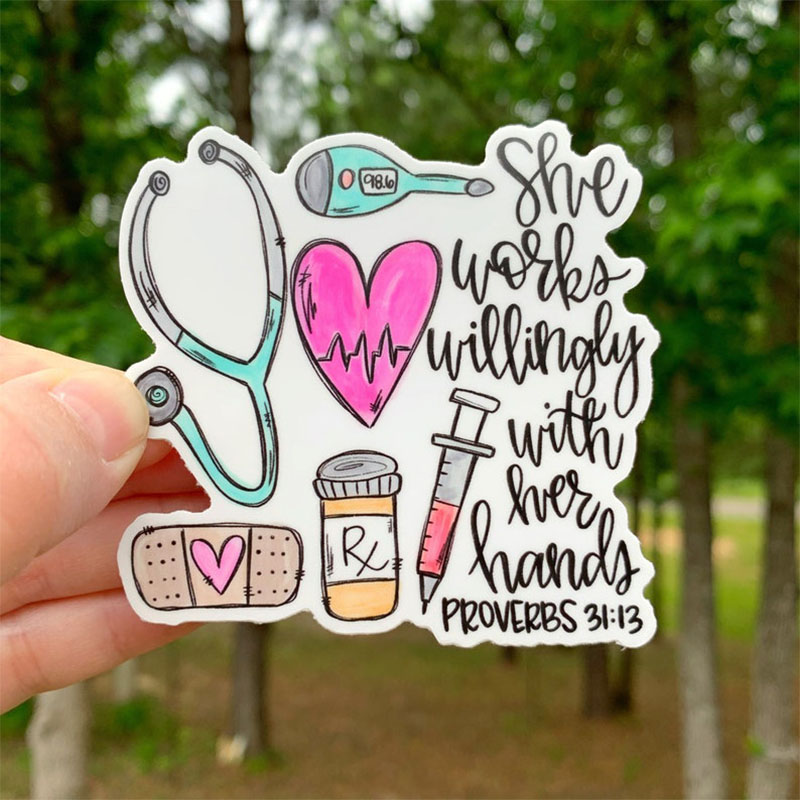 98.6
She
works
willingly
with
her
hands
PROVERBS 31:13
Rx